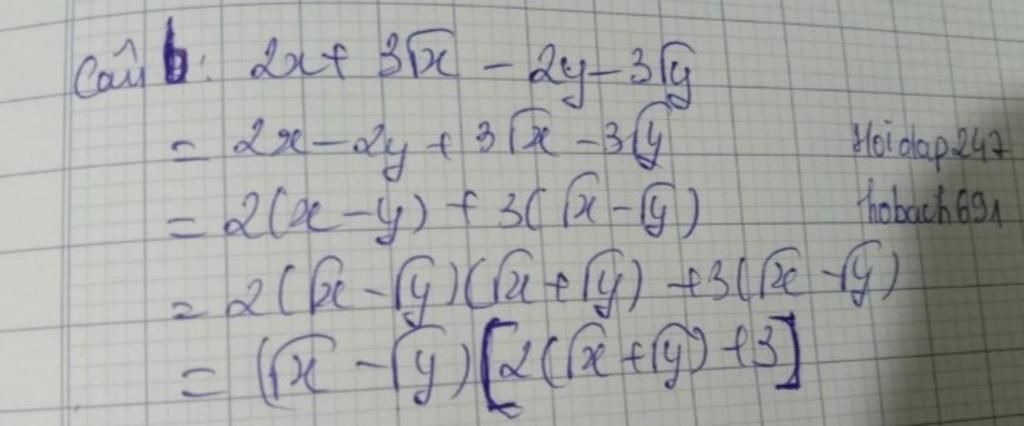 Câu b: 2x + 3√x - 2y - 3√y
= 2x - 2y + 3√x - 3√y
Hoidap247
= 2(x - y) + 3(√x - √y)
hobach691
= 2(√x - √y)(√x + √y) + 3(√x - √y)
= (√x - √y)[2(√x + √y) + 3]